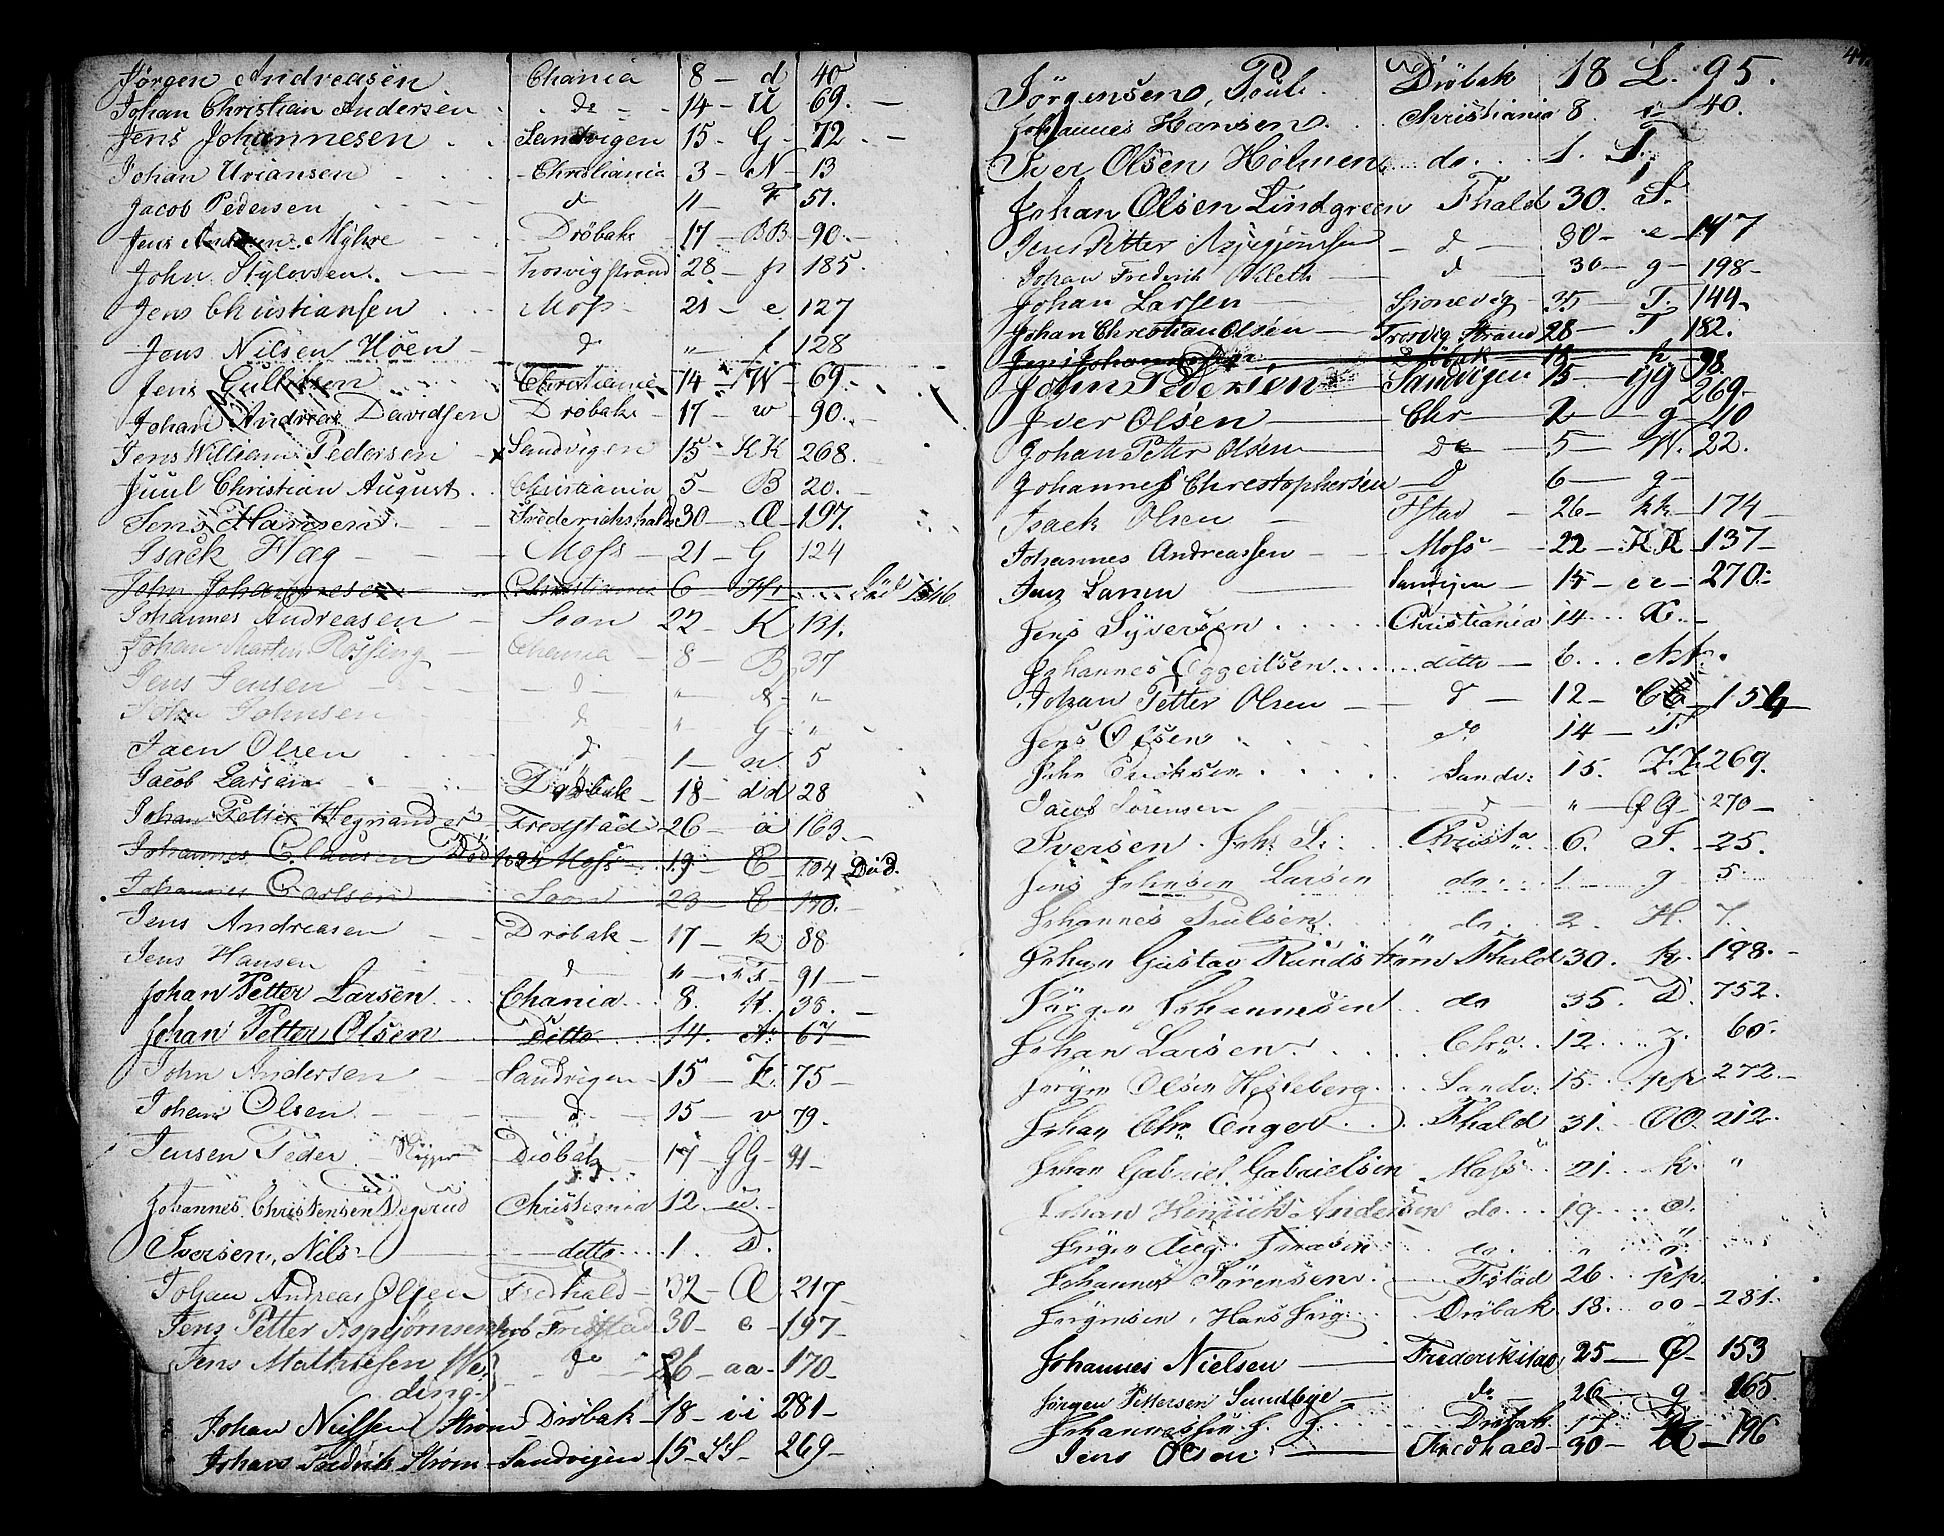 Jørgen Andreasen Chania 8 — d 40
Johan Christian Andersen do 14 — U 69. —
Jens Johannesen Sandvigen 15 — G — 72 —
Johan Uriansen Christiania 3 — N — 13
Jacob Pedersen d 11 — F 51.
Jens Myhre Drøbak 17 — BB — 90.—
John Trosvigstrand 28 — p 185.
Jens Christiansen Moss 21 — e 127
Jens Nilsen Höen d „ — f 128
Jens Gulliksen Christiania 14 — W — 69.
Johan Andreas Davidsen Drøbak 17 — w — 90.
Jens William Pedersen Sandvigen 15 — KK 268.
Juul Christian August Christiania 5 — B 20.
Jens Hansen Frederichshald 30 — Æ — 197.
Isack Flæg Moss 21 — G 124
John Johannesen Christiania 6
Johannes Andreasen Soon 22 — K 131.
Johan Martin Røssing Chania 8 — B 37
Jens Jensen d „ — „
John Johnsen d „ G „
Olsen d 1 — n 5
Jacob Larsen Drøbak 18 — dd 28
Johan Petter Fredstad 26 — ä 163.
Johannes Clausen Död Moss 19 — C — 104 Död.
Johannes Carlsen Soon 23 — C — 140.
Jens Andreasen Drøbak 17 — k 88
Jens Hansen d „ 91 —
Johan Petter Larsen Chania 8. 38. —
Johan Petter Olsen Ditto 14. A. 67
John Andersen Sandvigen 15 — Z. 75 —
Johan Olsen d 15 — v 79.
Jensen Peder Drøbak 17 — GG — 91 —
Johannes Christensen Degerud Christiania 12. — ü. —
Iversen, Nils ditto 1. D.
Johan Andreas Olsen Fredhald — 32 — Œ 217 —
Jens Petter Aspejørnsen Fredstad 30 — e — 197 —
Jens Mathiesen We= do 26 — aa — 170 —
ding
Johan Nielsen Strøm Drøbak — 18 — ii 281 —
Johan Fredrik Strøm — Sandvigen 15 — SS — 269 —
Jørgensen, Poul Drøbak 18 L. 95.
Johannes Hansen Christiania 8 40.
Iver Olsen Holmen do 1. I.
Johan Olsen Lindgreen Fhald 30. S.
Jens Petter d 30 — e — 197
Johan Fredrik d 30 — g — 198 —
Johan Larsen 35 — T. 144 —
Johan Christian Olsen — Trosvig Strand 28 — T 182.
Jens Drøbak 18 — h — 98.
John Pedersen Sandvigen 15 — gg 269 —
Iver Olsen — Chr — 2 — g — 10
Johan Peter Olsen — do — 5 — W. 22.
Johannes Christophersen — d 6 — g —
Isack Olsen — Fstad — 26 — kk — 174 —
Johannes Andreassen — Moss — 22 — 137 —
Jens Larsen Sandvigen — 15 — ee — 270 —
Jens Syversen Christiania 14
Johannes ditto — 6. NN.
Johan Petter Olsen — d — 12 — CC — 154 —
Jens Olsen do 14 — T.
John Sandv: 15. ZZ 269.
Jacob Sörensen — d „ — QQ — 270 —
Iversen Christa 6. S. — 25.
Jens Johnsen Larsen do. 1. g 5.
Johannes do. 2. H. 7.
Johan Gustav Rundström Fhald 30. k. 198. —
Jörgen Johannesen do 35. D. 752.
Johan Larsen Chra 12. z. 60.
Jörgen Olsen Sandv: 15. pp 272. —
Johan Chr. Enger Fhald 31. OO. 212.
Johan Gabriel Gabrielsen Moss 21. k. „
Johan Hinrick Andersen do 19. c.
Jörgen do. „ ö.
Johannes Sörensen Fstad 26. pp.
Jørgensen, Hans Jørg: Drøbak 18. oo — 281.
Johannes Nielsen — Frederikstad 25 — Ø — 153
Jørgen Pettersen do 26 — g. 165
Johannessen Drøbak 17
Jens Olsen — Fredhald — 30 — 196